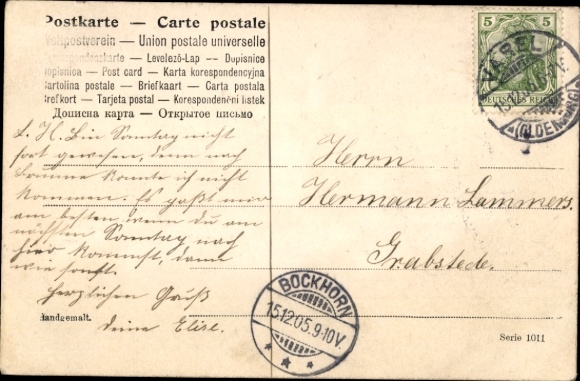 Postkarte — Carte postale
Weltpostverein — Union postale universelle
Correspondenzkarte — Levelező-Lap — Dopisnice
Dopisnica — Post card — Karta korespondencyjna
Cartolina postale — Briefkaart — Carta postala
Brefkort — Tarjeta postal — Korespondenční listek
Дописна карта — Открытое письмо
5 5
DEUTSCHES REICH
VAREL
15.12.05.
(OLDENBURG)
L. H. Bin Sonntag nicht
fort gewesen, denn nach
konnte ich nicht
kommen. Es paßt mir
am besten, wenn du am
nächsten Sonntag nach
hier kommst, dann
wie sonst.
Herzlichen Gruß
deine Elise.
Herrn
Hermann Lammers.
Grabstede.
BOCKHORN
15.12.05.9-10V.
Handgemalt.
Serie 1011